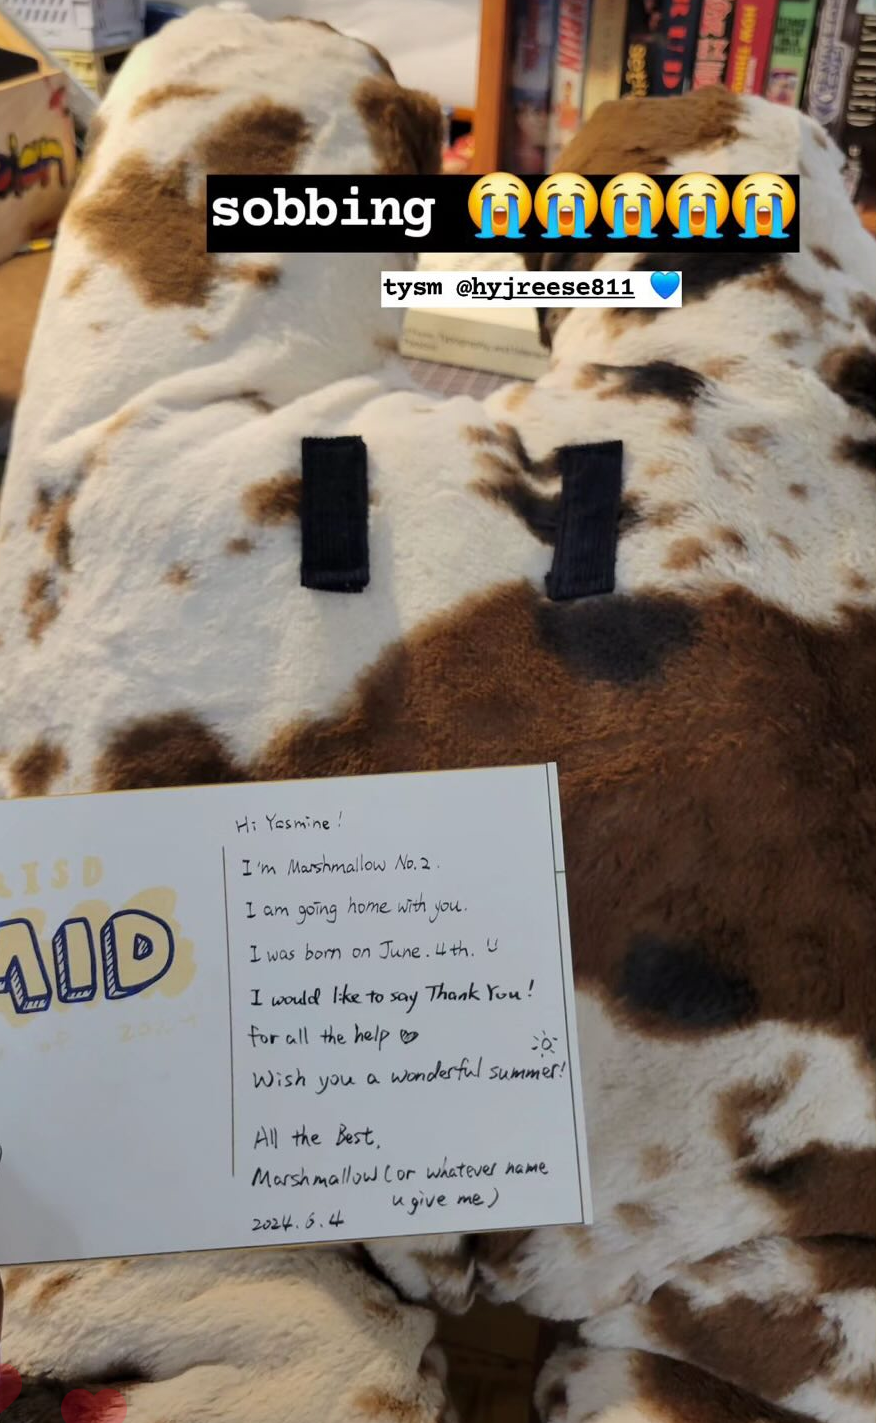 sobbing 😭😭😭😭😭
tysm @hyjreese811 💙
RISD
MID
Hi Yasmine!
I'm Marshmallow No.2.
I am going home with you.
I was born on June.4th. ت
I would like to say Thank You!
for all the help ♡
Wish you a wonderful summer!
All the Best,
Marshmallow (or whatever name
u give me)
2024.6.4